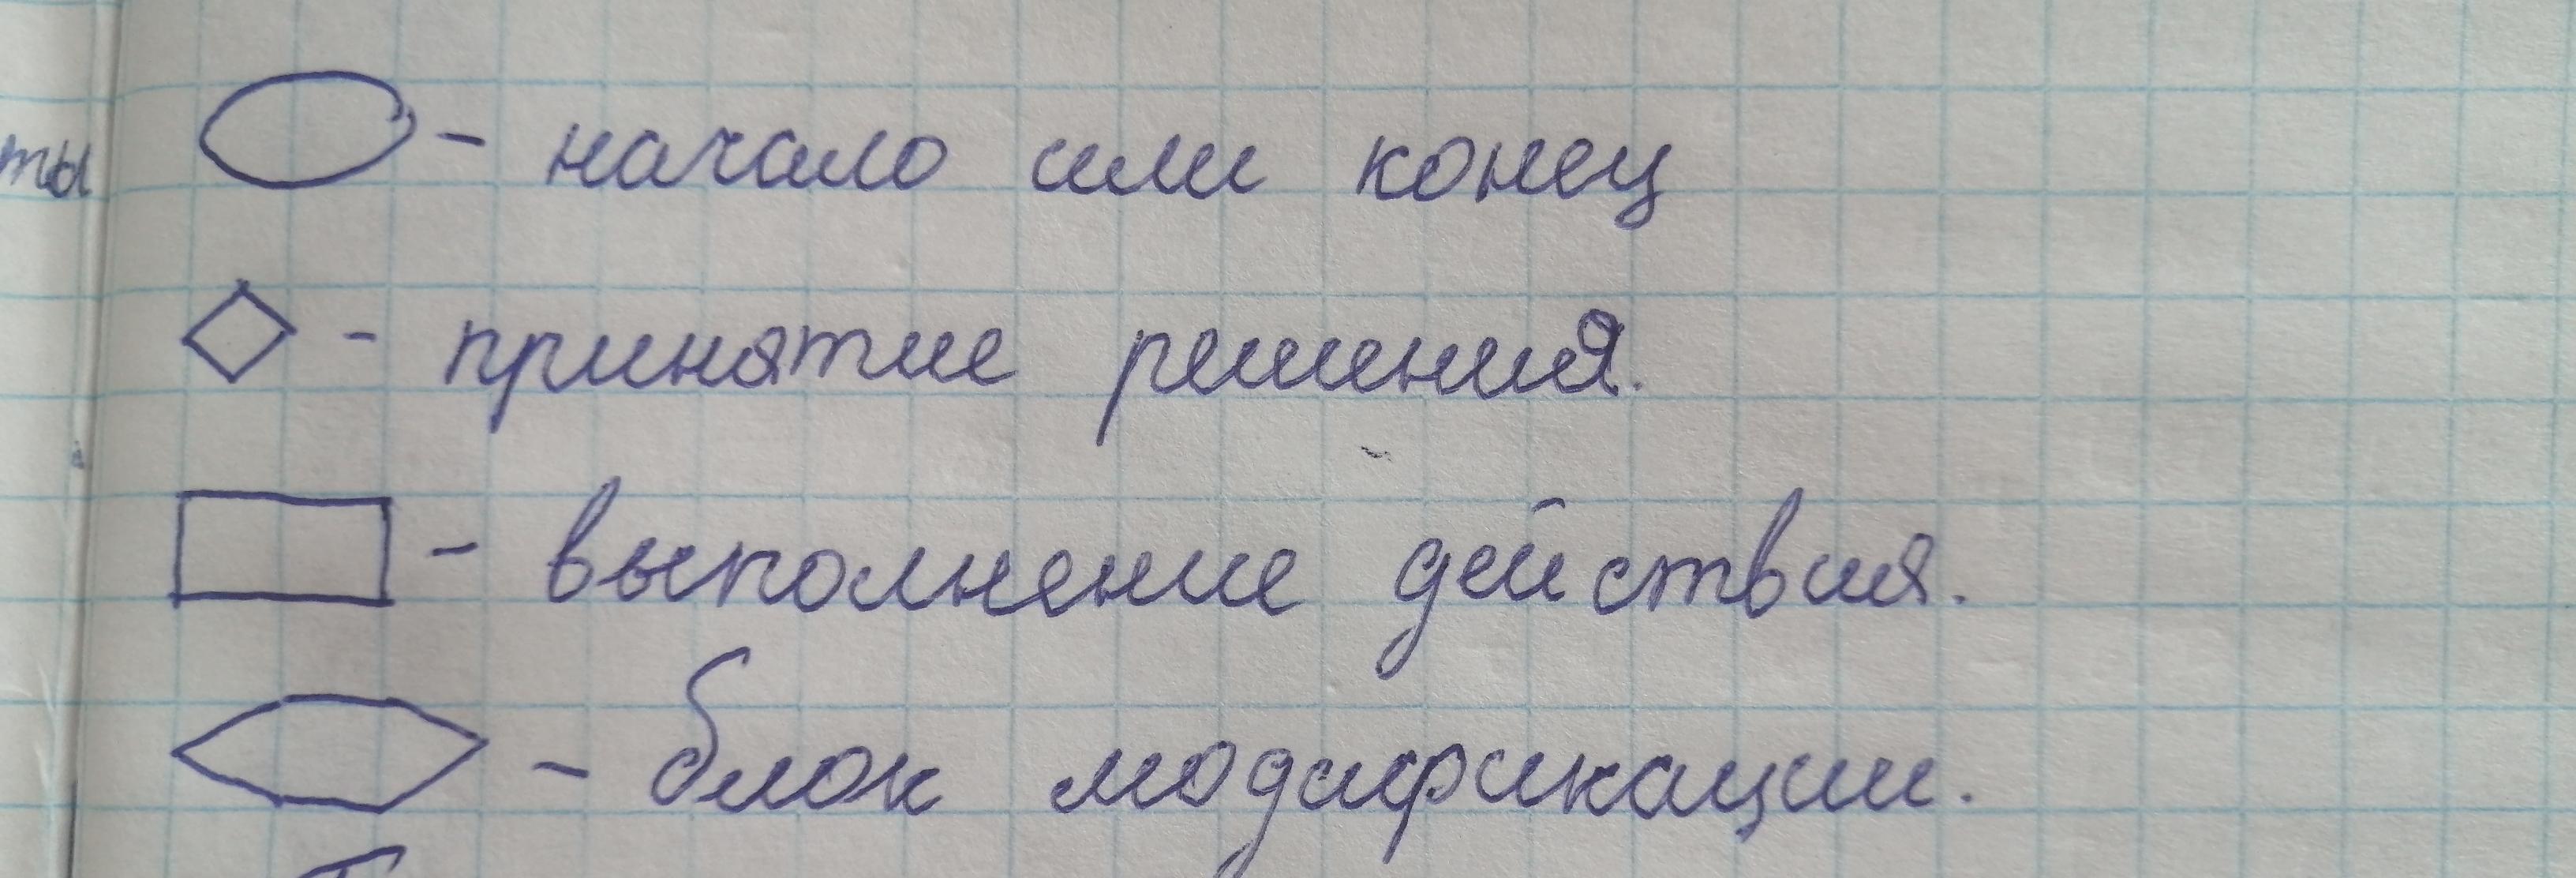 ты
- начало или конец
- принятие решения.
- выполнение действия.
- блок модификации.